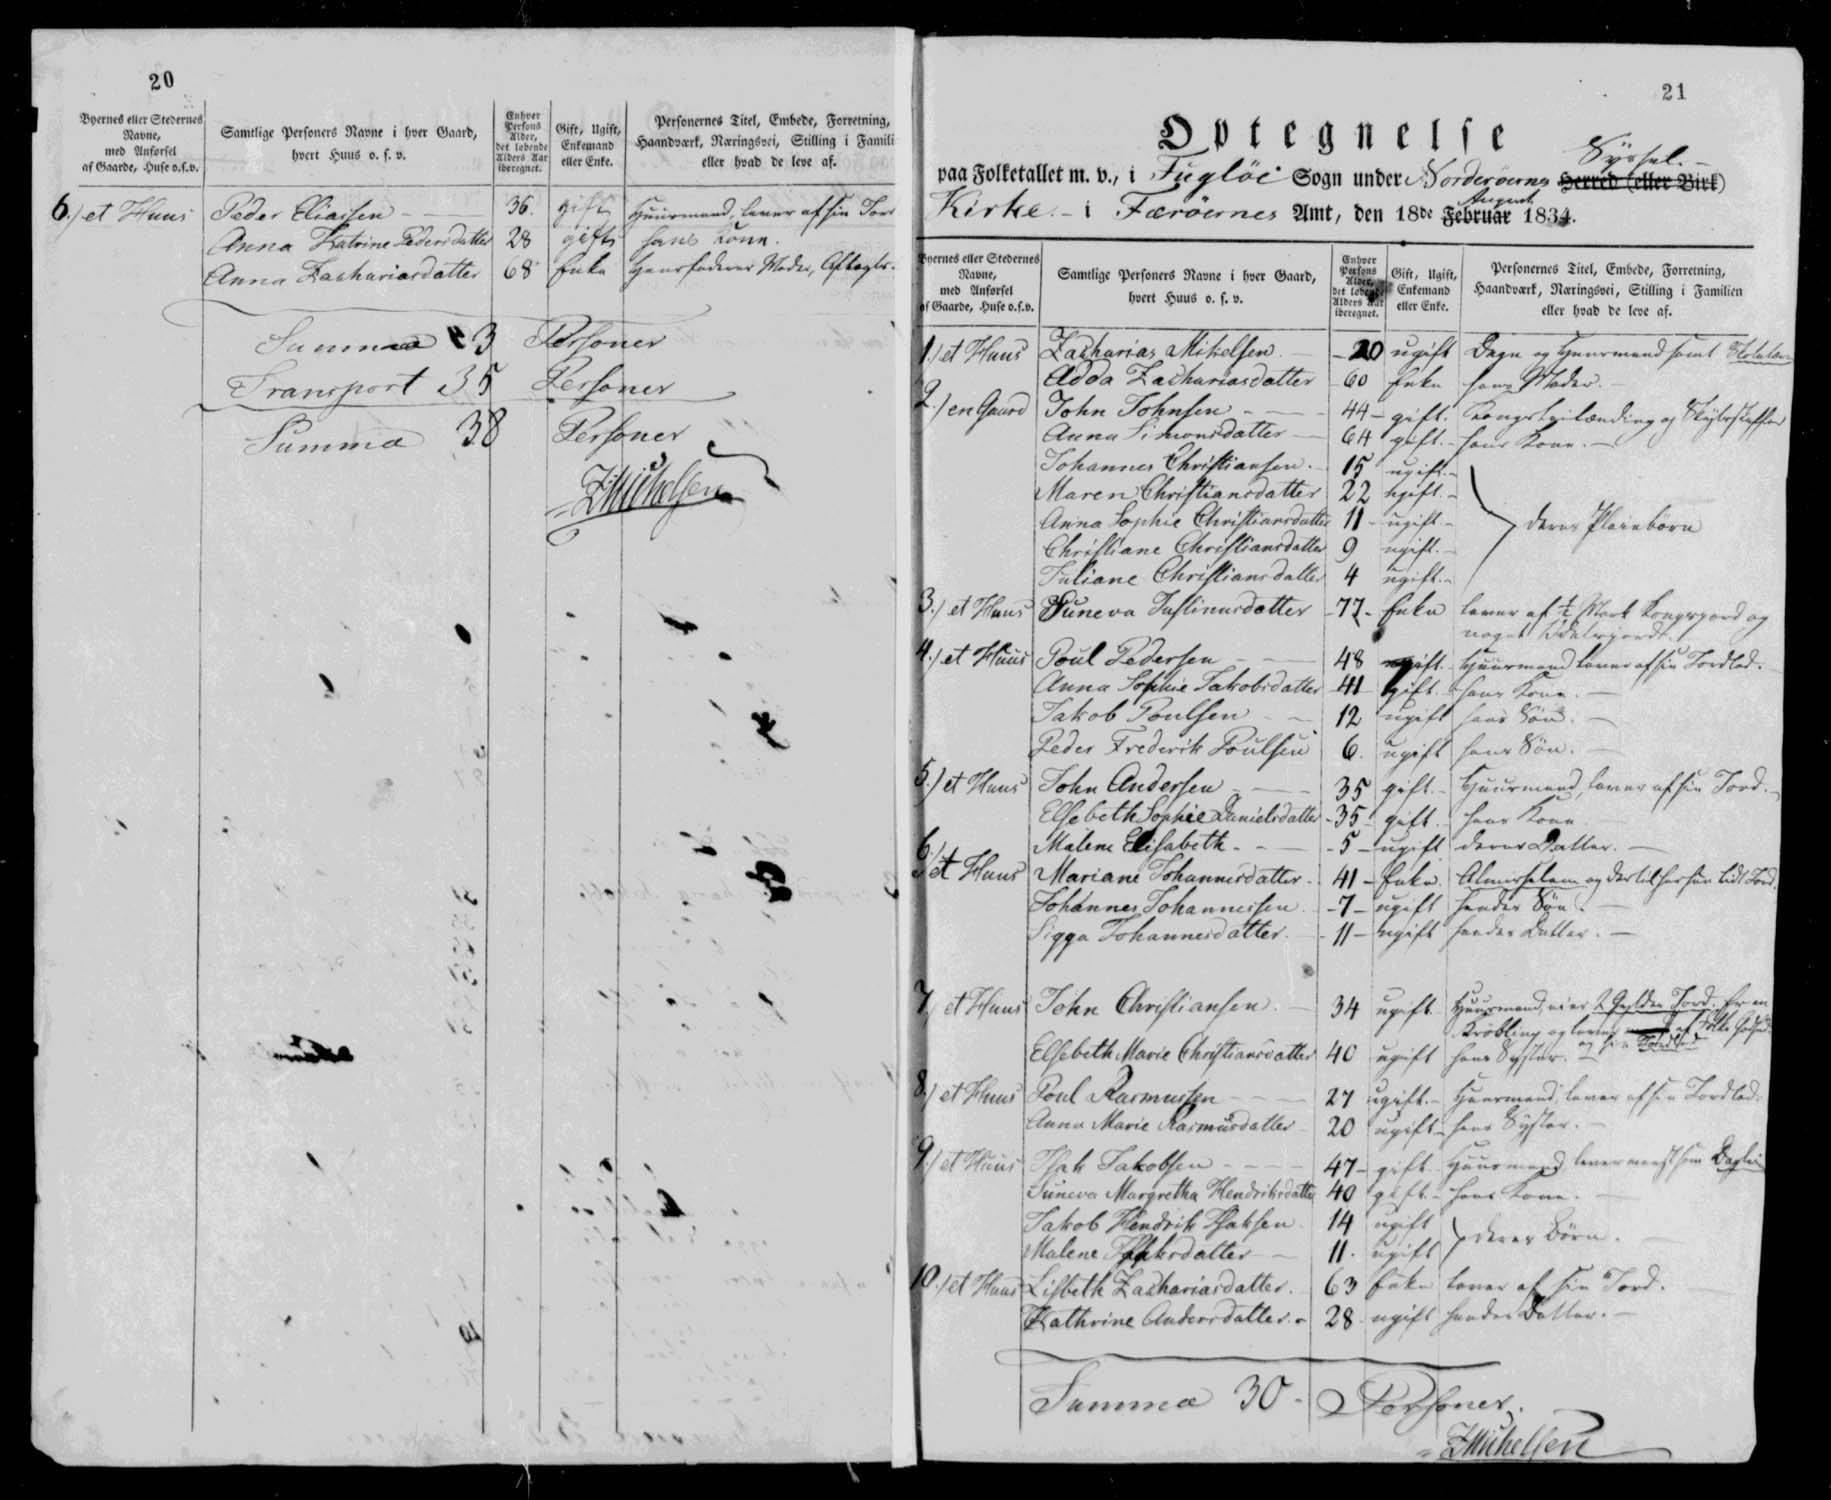 20
Byernes eller Stedernes Navne, med Anførsel af Gaarde, Huse o.s.v.
Samtlige Personers Navne i hver Gaard, hvert Huus o. s. v.
Enhver Persons Alder, det løbende Alders Aar iberegnet.
Gift, Ugift, Enkemand eller Enke.
Personernes Titel, Embede, Forretning, Haandværk, Næringsvei, Stilling i Famili eller hvad de leve af.
6.) et Huus Peder Eliassen 36. gift Huusmand, lever af sin Jord
Anna Katrine Pedersdatter 28 gift hans Kone.
Anna Zachariasdatter 68 Enke Huusfaderens Moder, Aftægts-
Summa 3 Personer
Transport 35 Personer
Summa 38 Personer
ZMichelsen
21
Optegnelse
paa Folketallet m. v., i Fugløe Sogn under Norderøernes Herred (eller Birk) Syssel.
Kirke. i Færøernes Amt, den 18de Februar August 1834.
Byernes eller Stedernes Navne, med Anførsel af Gaarde, Huse o.s.v.
Samtlige Personers Navne i hver Gaard, hvert Huus o. s. v.
Enhver Persons Alder, det løbende Alders Aar iberegnet.
Gift, Ugift, Enkemand eller Enke.
Personernes Titel, Embede, Forretning, Haandværk, Næringsvei, Stilling i Familien eller hvad de leve af.
1.) et Huus Zacharias Mikelsen 20 ugift Degn og Huusmand samt
Adda Zachariasdatter 60 Enke hans Moder.
2.) en Gaard John Johnsen 44 gift. Kongsleilænding og Skydsskaffer
Anna Simonsdatter 64 gift. hans Kone.
Johannes Christiansen. 15 ugift.
Maren Christiansdatter 22 ugift.
Anna Sophie Christiansdatter 11 ugift deres Pleiebørn
Christiane Christiansdatter 9 ugift.
Juliane Christiansdatter 4 ugift.
3.) et Huus Suneva Justinusdatter 77 Enke lever af ½ Mark Kongsjord og
noget Odelsjord.
4.) et Huus Poul Pedersen 48 gift. Huusmand lever af sin Jordlod.
Anna Sophie Jakobsdatter 41 gift. hans Kone.
Jakob Poulsen 12 ugift hans Søn.
Peder Frederik Poulsen 6. ugift hans Søn.
5.) et Huus John Andersen 35 gift. Huusmand, lever af sin Jord.
Elsebeth Sophie Danielsdatter 35 gift. hans Kone
Malene Elisabeth 5 ugift deres Datter.
6.) et Huus Mariane Johannesdatter. 41 Enke. Almisselem og dertil har hun lidt Jord.
Johannes Johannessen. 7 ugift hendes Søn.
Sigga Johannesdatter. 11 ugift hendes Datter.
7.) et Huus John Christiansen. 34 ugift Huusmand, eier 2 Gylden Jord. Er en
Krøbling og lever af Folks Godhed
og sin Jordlod
Elsebeth Marie Christiansdatter 40 ugift hans Syster.
8.) et Huus Poul Rasmussen 27 ugift. Huusmand, lever af sin Jordlod.
Anna Marie Rasmusdatter 20 ugift hans Syster.
9.) et Huus Isak Jakobsen 47 gift Huusmand lever meest som
Suneva Margretha Hendriksdatter 40 gift. hans Kone.
Jakob Hendrik Isaksen. 14 ugift deres Børn.
Malene Isaksdatter 11. ugift
10.) et Huus Lisbeth Zachariasdatter. 63 Enke lever af sin Jord.
Kathrine Andersdatter. 28 ugift hendes Datter.
Summa 30 Personer.
ZMichelsen